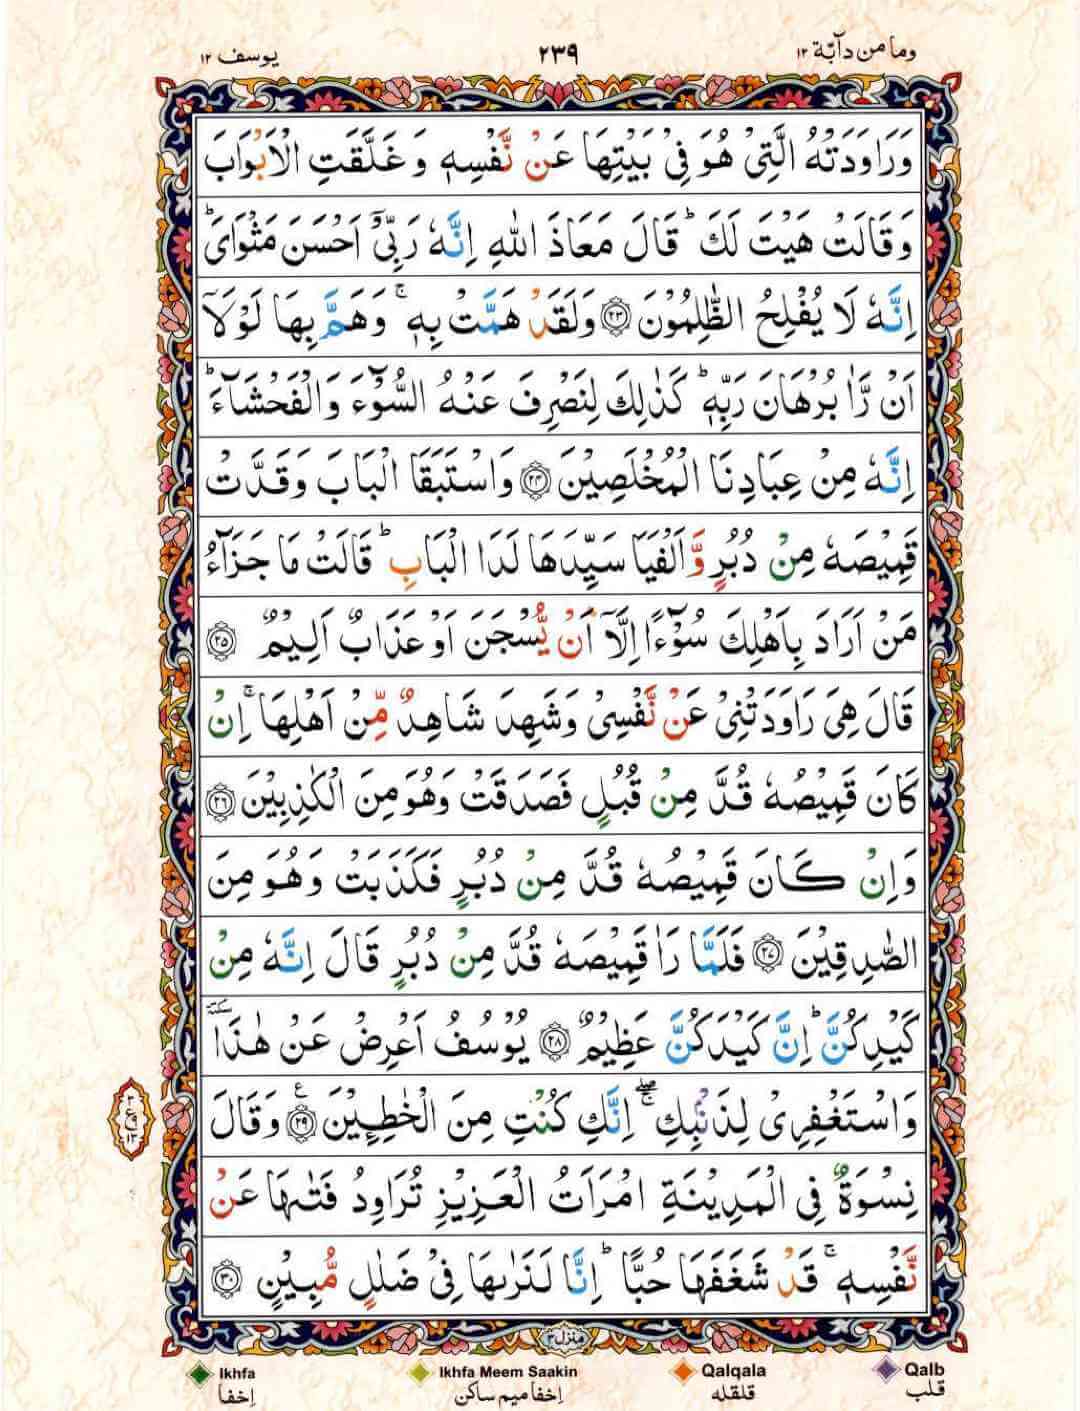 وما من دآبة ١٢ ٢٣٩ يوسف ١٢
وَرَاوَدَتْهُ الَّتِیْ هُوَ فِیْ بَیْتِهَا عَنْ نَّفْسِهٖ وَ غَلَّقَتِ الْاَبْوَابَ
وَقَالَتْ هَیْتَ لَكَ ؕ قَالَ مَعَاذَ اللّٰهِ اِنَّهٗ رَبِّیْۤ اَحْسَنَ مَثْوَایَ ؕ
اِنَّهٗ لَا یُفْلِحُ الظّٰلِمُوْنَ ۝٢٣ وَلَقَدْ هَمَّتْ بِهٖ ۚ وَهَمَّ بِهَا لَوْلَاۤ
اَنْ رَّاٰ بُرْهَانَ رَبِّهٖ ؕ كَذٰلِكَ لِنَصْرِفَ عَنْهُ السُّوْٓءَ وَالْفَحْشَآءَ ؕ
اِنَّهٗ مِنْ عِبَادِنَا الْمُخْلَصِیْنَ ۝٢٤ وَاسْتَبَقَا الْبَابَ وَقَدَّتْ
قَمِیْصَهٗ مِنْ دُبُرٍ وَّ اَلْفَیَا سَیِّدَهَا لَدَا الْبَابِ ؕ قَالَتْ مَا جَزَآءُ
مَنْ اَرَادَ بِاَهْلِكَ سُوْٓءًا اِلَّاۤ اَنْ یُّسْجَنَ اَوْ عَذَابٌ اَلِیْمٌ ۝٢٥
قَالَ هِیَ رَاوَدَتْنِیْ عَنْ نَّفْسِیْ وَشَهِدَ شَاهِدٌ مِّنْ اَهْلِهَا ۚ اِنْ
كَانَ قَمِیْصُهٗ قُدَّ مِنْ قُبُلٍ فَصَدَقَتْ وَهُوَ مِنَ الْكٰذِبِیْنَ ۝٢٦
وَاِنْ كَانَ قَمِیْصُهٗ قُدَّ مِنْ دُبُرٍ فَكَذَبَتْ وَهُوَ مِنَ
الصّٰدِقِیْنَ ۝٢٧ فَلَمَّا رَاٰ قَمِیْصَهٗ قُدَّ مِنْ دُبُرٍ قَالَ اِنَّهٗ مِنْ
كَیْدِكُنَّ ؕ اِنَّ كَیْدَكُنَّ عَظِیْمٌ ۝٢٨ یُوْسُفُ اَعْرِضْ عَنْ هٰذَا
وَاسْتَغْفِرِیْ لِذَنْۢبِكِ ۖۚ اِنَّكِ كُنْتِ مِنَ الْخٰطِـِٕیْنَ ۝٢٩ وَقَالَ
نِسْوَةٌ فِی الْمَدِیْنَةِ امْرَاَتُ الْعَزِیْزِ تُرَاوِدُ فَتٰىهَا عَنْ
نَّفْسِهٖ ۚ قَدْ شَغَفَهَا حُبًّا ؕ اِنَّا لَنَرٰىهَا فِیْ ضَلٰلٍ مُّبِیْنٍ ۝٣٠
منزل ٣
Ikhfa Ikhfa Meem Saakin Qalqala Qalb
اِخفا اِخفا میم ساکن قلقله قلب